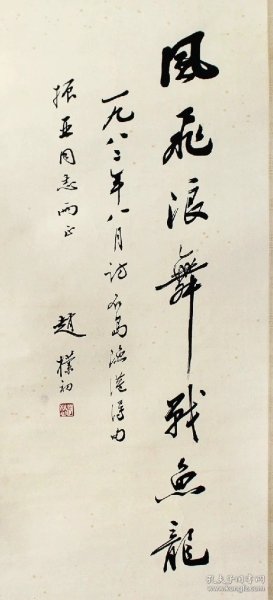 風飛浪舞戰魚龍
一九八二年八月訪石島漁港得句
振亚同志両正
趙樸初
孔夫子旧书网